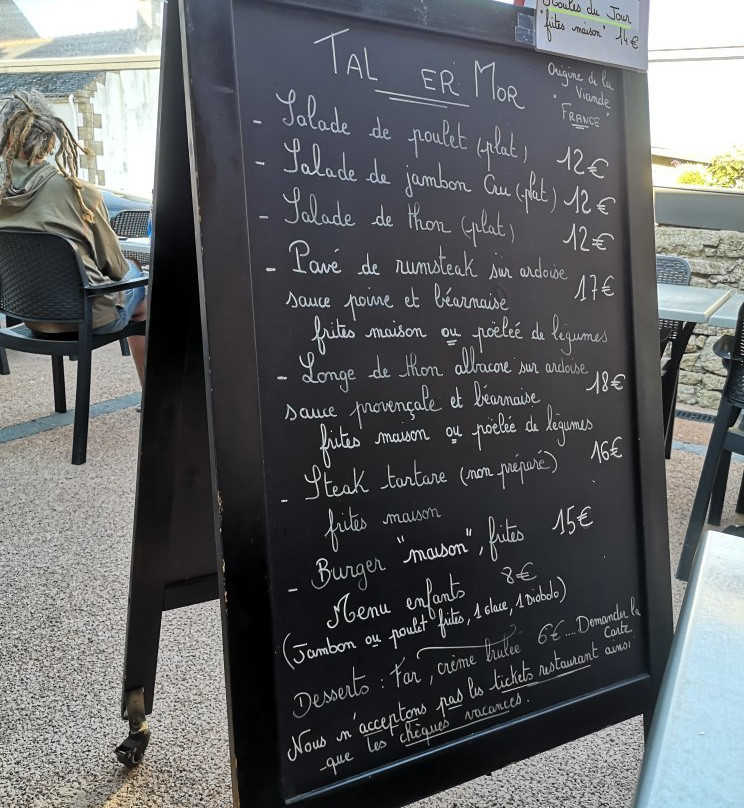 Moules du Jour
"frites maison" 14€
TAL ER MOR
Origine de la
Viande
"FRANCE"
- Salade de poulet (plat) 12€
- Salade de jambon Cru (plat) 12€
- Salade de thon (plat) 12€
- Pavé de rumsteak sur ardoise 17€
sauce poivre et béarnaise
frites maison ou poëleé de légumes
- Longe de thon albacore sur ardoise 18€
sauce provençale et béarnaise
frites maison ou poëlée de légumes
- Steak tartare (non préparé) 16€
frites maison
- Burger "maison", frites 15€
Menu enfants 8€
(Jambon ou poulet frites, 1 glace, 1 Diabolo)
Desserts : Far, crème brulée 6€.... Demander la
Carte
Nous n'acceptons pas les tickets restaurant ainsi
que les chèques vacances.